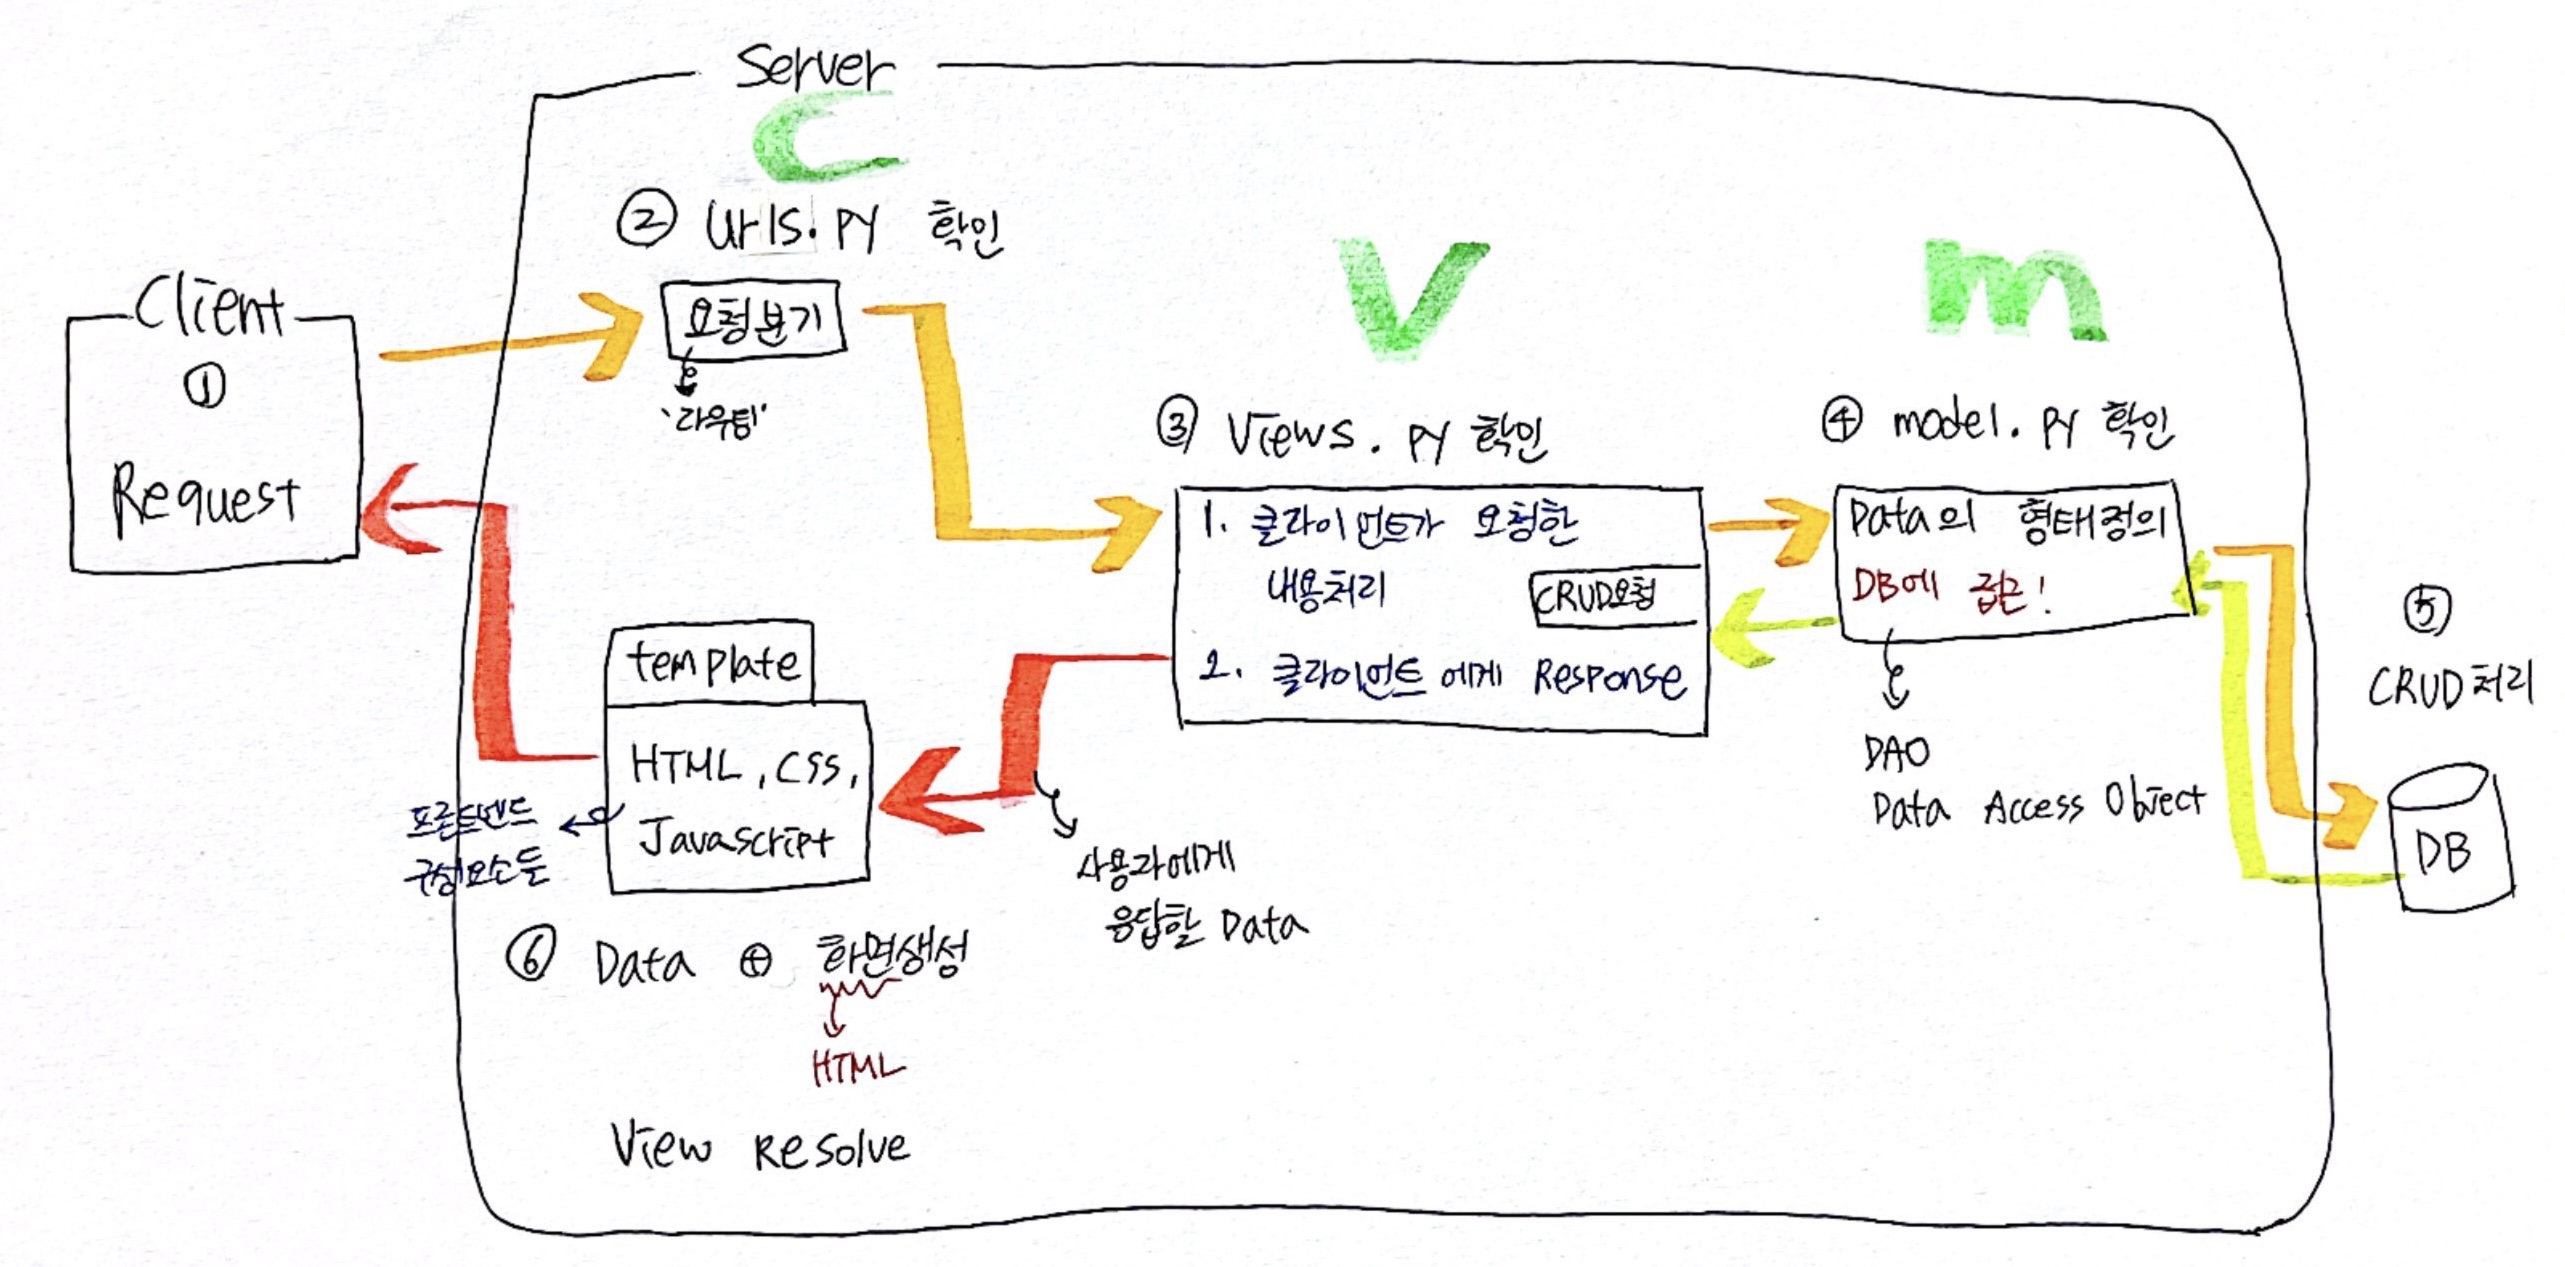 Server
C
② urls.py 확인
요청분기
'라우팅'
Client
①
Request
V
③ Views.py 확인
1. 클라이언트가 요청한
내용처리
CRUD요청
2. 클라이언트에게 Response
m
④ model.py 확인
Data의 형태정의
DB에 접근!
DAO
Data Access Object
⑤
CRUD처리
DB
template
HTML, CSS,
Javascript
프론트엔드
구성요소들
사용자에게
응답할 Data
⑥ Data ⊕ 화면생성
HTML
View Resolve